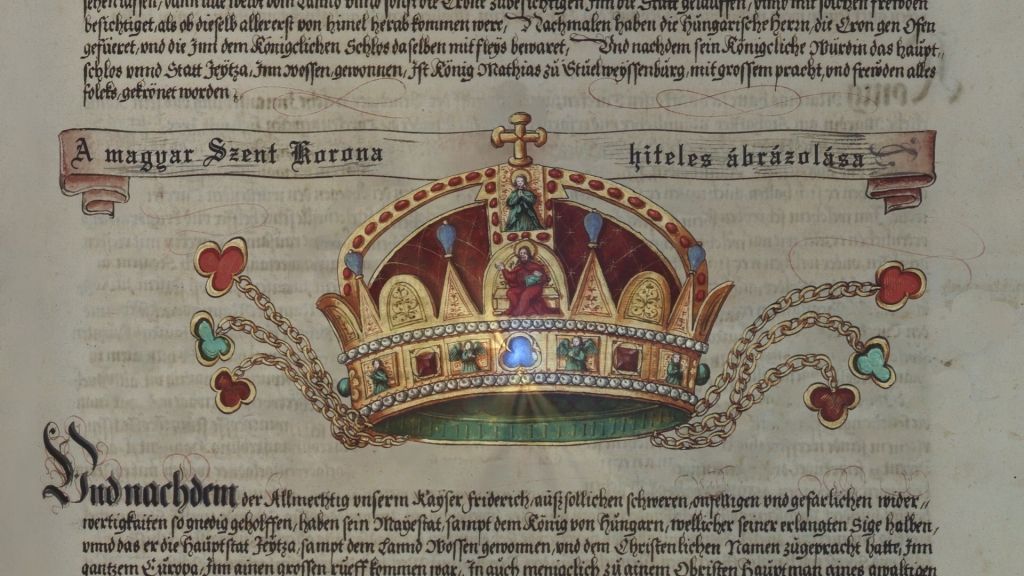 sehen lassen, dann alle welt vom Lannd vnnd sonst die Crone zubesichtigen Inn die Statt geluffen, vnnd mit solchen freŵden
besichtiget, als ob dieselb allererst von himel herab kommen were, Nachmalen haben die Hungärische Herrn, die Cron gen Ofen
gefüeret, vnd die Inn dem Königclichen Schlos daselben mit fleys bewaret, Vnd nachdem sein Königcliche Würdin das haupt,,
schlos vnnd Statt Jeÿtza, Inn Wossen, gewonnen, Ist König Mathias zu Stüelweÿssenburg, mit grossem pracht, vnd freẅden alles
folcks, gekrönet worden.
A magyar Szent Korona hiteles ábrázolása
Vnd nachdem der Allmechtig vnserm Kaÿser friderich, auß sollichen schweren, vnselligen vnd gefarlichen wider,,
wertigkaiten so gnedig geholffen, haben sein Maÿestat, sampt dem König von Hungarn, wellicher seiner erlangten Sige halben,
vnnd das er die Hauptstat Jeÿtza, sampt dem Lannd Wossen gewonnen, vnd dem Christenlichen Namen zugepracht hatte, Inn
gantzem Europa, Inn ainen grossen rüeff kommen war, In auch menigclich zu ainem Obristen Hauptman aines gwaltigen